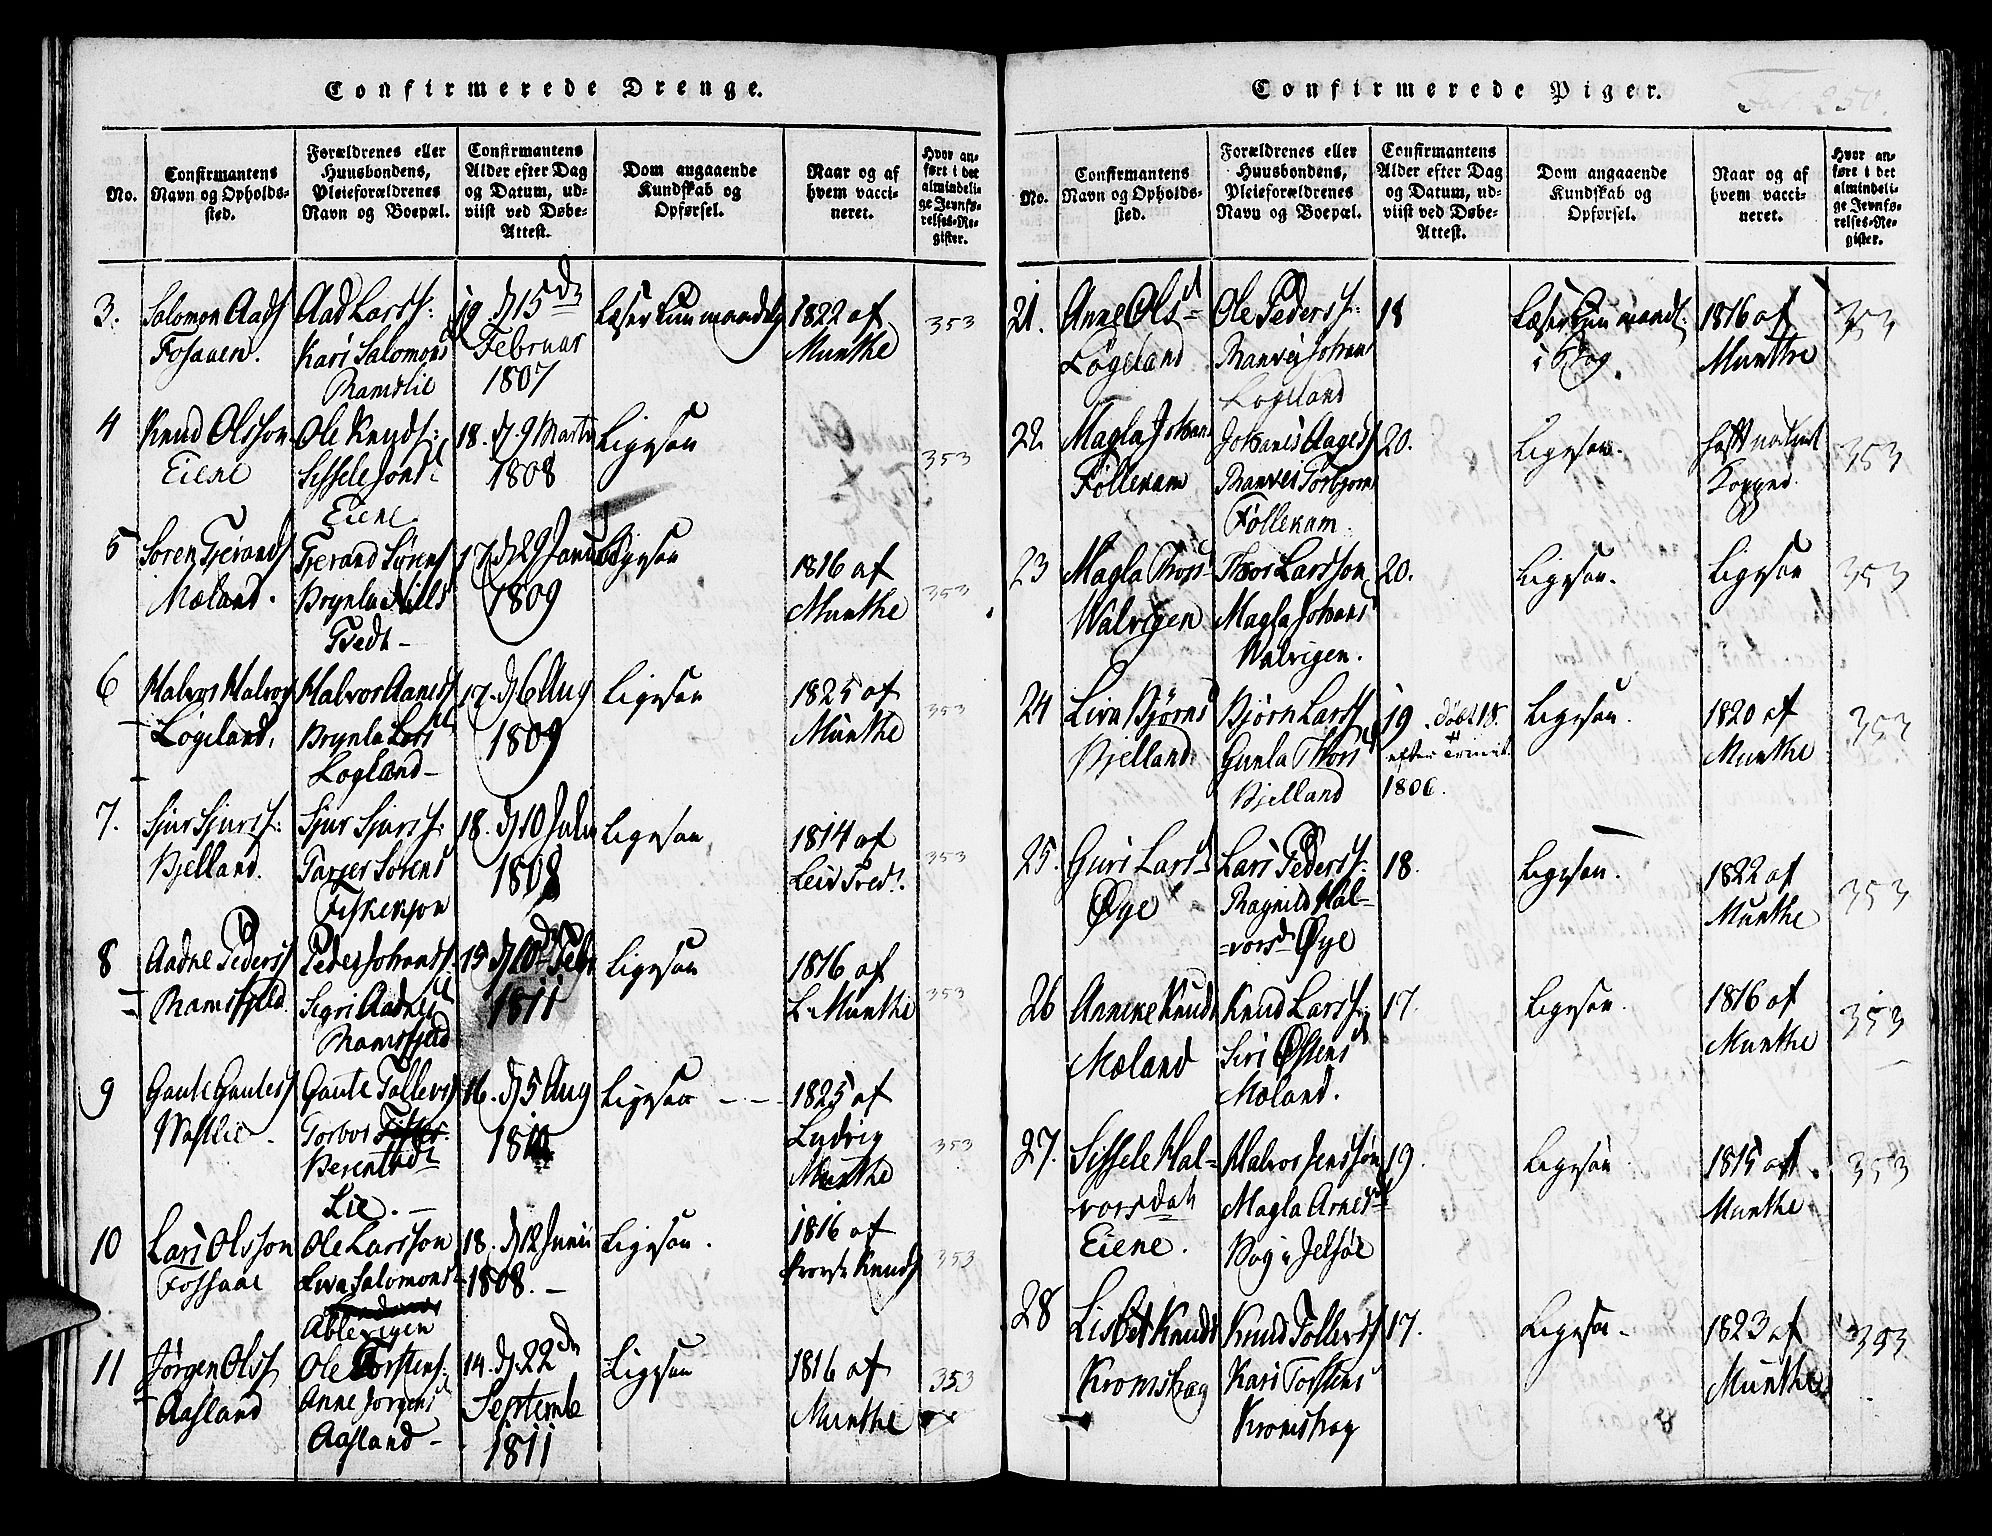 Confirmerede Drenge.
No.
Confirmantens
Navn og Opholds-
sted.
Forældrenes eller
Huusbondens,
Pleieforældrenes
Navn og Boepæl.
Confirmantens
Alder efter Dag
og Datum, ud-
viist ved Døbe-
Attest.
Dom angaaende
Kundskab og
Opførsel.
Naar og af
hvem vacci-
neret.
Hvor an-
ført i det
almindeli-
ge Jevnfø-
relses-Re-
gister.
3.
Salomon Aads
Fosaaen.
Aad Larss:
Kari Salomons
Ramslie
19 d 15 de
Februar
1807
Læser kun maadelig
1822 af
Munthe
353
4
Knud Olsson
Eiene
Ole Knuds:
Sissele Jonsd
Eiene
18. d. 9 Marts
1808
Ligesaa
353
5
Soren Tierands
Mæland.
Tierand Sørens
Brynla Nilsd
Tvedt -
17. d 29 Janu
1809
Ligesaa
1816 af
Munthe
353
6
Halvor Halvors
Løgeland,
Halvor Aanens
Brynla Larsd
Logland -
17. d. 6 Aug
1809
Ligesaa
1825 af
Munthe
353
7.
Sjur Sjurss:
Bjelland.
Sjur Sjurss:
Sorens
18. d 10 Julii
1808
Ligesaa
1814 af
353
8
Aadne Peders
Ramsfjeld.
Peder Johans:
Sigri Aadne
Ramsfjeld
15 d 10 de Febr
1811
Ligesaa
1816 af
L. Munthe
353
9
Gaute Gautes
Wastlie -
Gaute Tollevs
Torbor
Lie. -
16. d 5 Aug
Ligesaa
1825 af
Ludvig
Munthe
353
10
Lars Olsson
Fossaae
Ole Larsson
Liva Salomonsd
18. d 12 Junii
1808. -
Ligesaa.
1816 af
Knuds
353
11
Jørgen Olss
Aasland
Ole Torstens:
Anne Jorgens
Aasland -
14. d. 22 de
Septembr
1811
Ligesaa
1816 af
Munthe
353
Confirmerede Piger.
Fol. 250.
No.
Confirmantens
Navn og Opholds-
sted.
Forældrenes eller
Huusbondens,
Pleieforældrenes
Navn og Boepæl.
Confirmantens
Alder efter Dag
og Datum, ud-
viist ved Døbe-
Attest.
Dom angaaende
Kundskab og
Opførsel.
Naar og af
hvem vacci-
neret.
Hvor an-
ført i det
almindeli-
ge Jevnfø-
relses-Re-
gister.
21.
Anne Olsd
Løgeland
Ole Pederss:
Ranvei Johans
Logeland
18
Læser kun maadl.
i Bog.
1816 af
Munthe
353
22.
Magla Johans
Føllekam
Johanes Aages
Ranvei Torbjorns
Føllekam.
20.
Ligesaa.
haft naturl
Kopper.
353
23
Magla Thors
Walvigen
Thor Larsson
Magla Johans
Walvigen.
20.
Ligesaa.
Ligesaa
353
24
Liva Bjørns
Bjelland
Bjørn Larss
Gunla Thors
Bjelland
19. døbt 18.
efter Trinit.
1806.
Ligesaa.
1820 af
Munthe
353
25.
Guri Larsd
Øye
Lars Pederss:
Ragnild Hal=
=vorsd Øye
18.
Ligesaa.
1822 af
Munthe
353
26
Annine Knuds
Mæland
Knud Larss:
Siri Østens
Mæland.
17.
Ligesaa.
1816 af
Munthe
353
27.
Sissele Hal=
vorsdat
Eiene.
Halvor Jenssøn
Magla Arnesd
Bog i Jelsøe
19.
Ligesaa
1815 af
Munthe
353
28
Lisbet Knuds
Kromshag
Knud Tollevs
Kari Torstens
Kromshag
17.
Ligesaa -
1823 af
Munthe
353